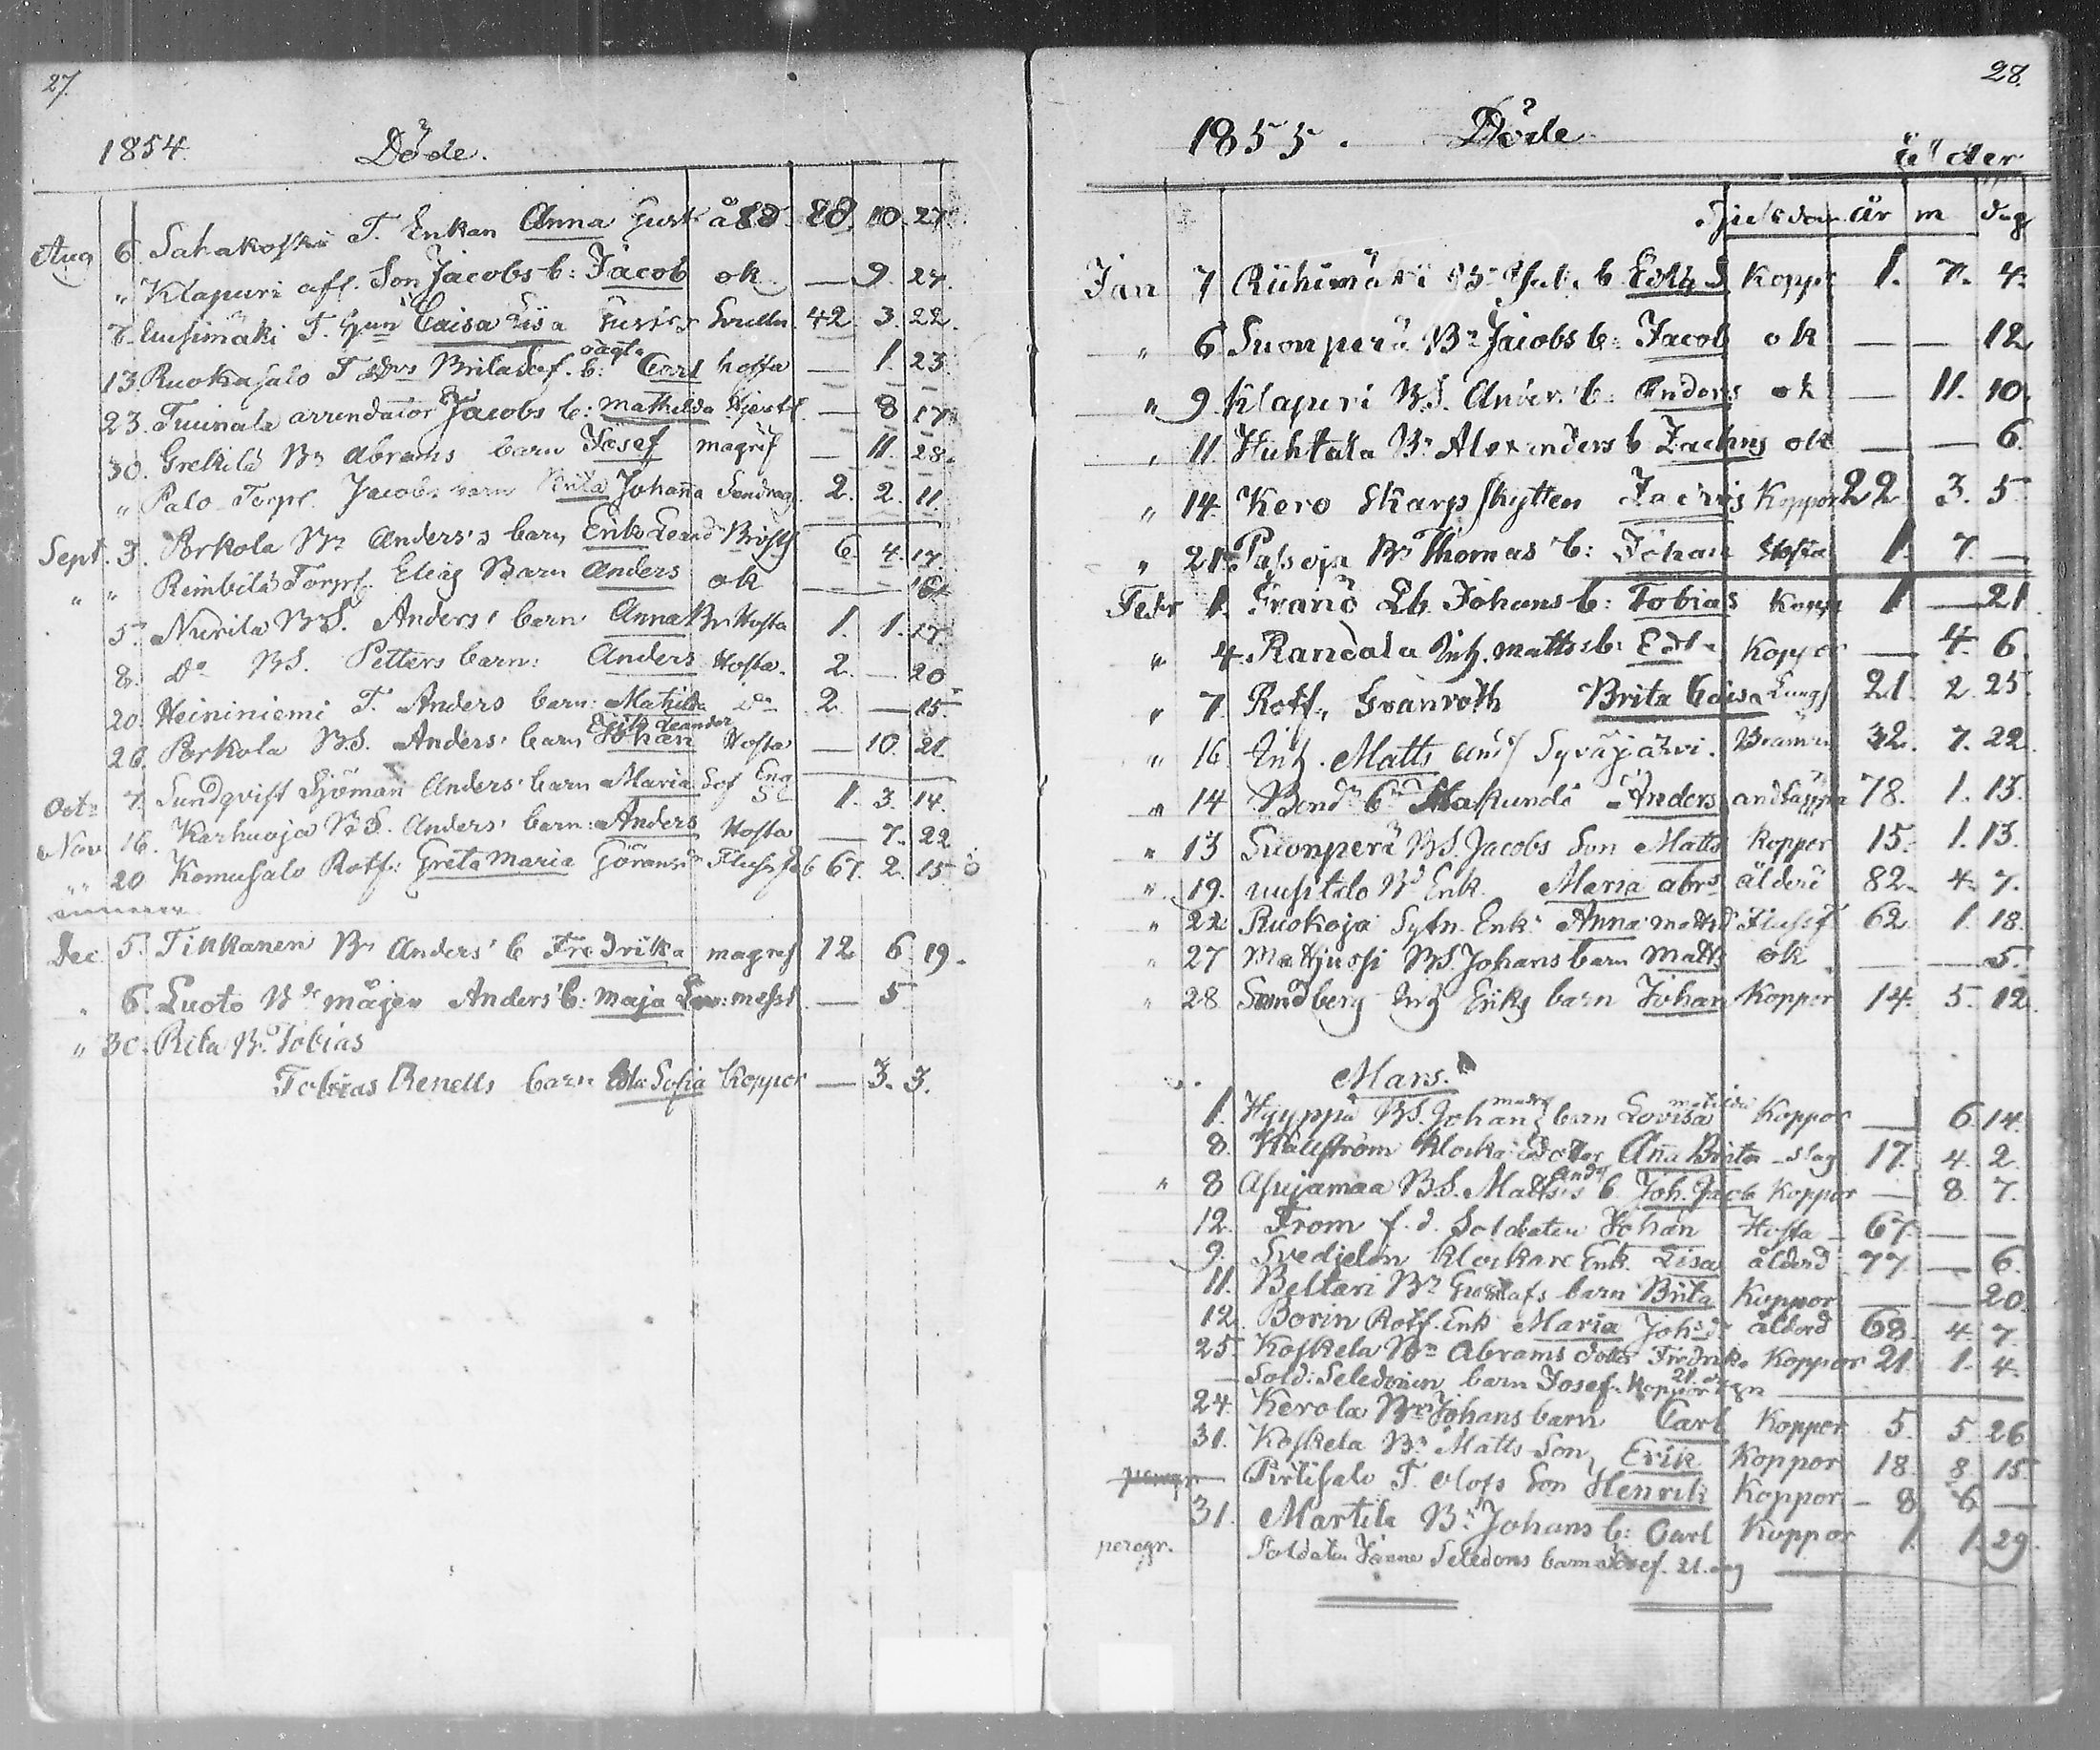 27.
1854. Döde.
Aug 6 Sahakoski T. Enkan Anna Gust åld. 88. 10. 27
" Klapuri afl. Son Jacobs b: Jacob ok — 9. 27.
7. Uusimäki T. Caisa Lisa 42. 3. 22.
13. Ruokasalo T. oägta b: Carl hosta — 1. 23.
23. Tuunala arrendator Jacobs b: Mathilda — 8 17
30. Grekilä Bn Abrams barn Josef magref — 11. 28.
" Palo Torpf. Jacobs barn Brita Johanna 2. 2. 11.
Sept. 3. Porkola Bn Anders's barn Erik Leand Bröstf 6. 4. 17.
" " Rembilä Torpf. Elias Barn Anders ok
5. Nurila BS. Anders' barn Anna Br Hosta 1. 1. 17.
8. Do BS. Petters barn: Anders Hosta. 2. — 20
20. Heininiemi T. Anders barn: Matilda Do 2. — 15.
26. Porkola BS. Anders' barn Johan Erik Leander Hosta — 10. 21.
Oct. 7. Sundqvist Sjöman Anders' barn Maria Sof Eng 1. 3. 14.
Nov 16. Karhuoja BS. Anders' barn: Anders Hosta — 7. 22
" 20 Komusalo Rotf: Greta Maria Göransdr 67. 2. 15
Dec 5. Tikkanen Bn Anders' b Fredrika magref 12 6 19.
" 6. Luoto Bde mågen Anders' b: Maja messl — 5
" 30. Rita Bn Tobias
Tobias Renells barn Eda Sofia Koppor — 3. 3.
28.
1855. Döde
ålder
Sjukdom år m dag
Jan 7 Riihimäki b Edla S Koppr 1. 7. 4.
" 6 Suonperä Bn Jacobs b: Jacob ok — — 12
" 9. Klapuri BS. Anders b: Anders ok — 11. 10.
" 11. Huhtala Bn Alexanders b Zachris ok — — 6.
" 14. Kero Skarpskytten Zachris Koppor 22 3. 5.
" 21. Passoja Bn Thomas b: Johan Hosta 1. 7. —
Febr 1. Franö Lb. Johans b: Tobias Kopp 1 — 21
" 4. Randala Inh. Matts b: Edla Koppor — 4. 6.
" 7. Rotf. Granroth Brita Caisa Lungf 21. 2. 25.
" 16. Inh. Matts And Syväjärvi. 32. 7. 22
" 14 Makunde Anders andtäppa 78. 1. 13.
" 13 Suonperä BS. Jacobs Son Matts Koppor 15. 1. 13.
" 19. Uusitalo Enk. Maria Abrs ålderd 82. 4. 7.
" 22 Ruokoja Sytn. Enk. Anna Mattsd 62 1. 18.
" 27 Mattjussi BS. Johans barn Matts ok — — 5.
" 28 Sundberg Inh Eriks barn Johan Koppor 14. 5. 12.
Mars.
1. Hyyppä BS. Johans barn Lovisa Matilda Koppor — 6 14.
8. Hällström Klocka Dotter Anna Brita slag 17. 4. 2.
" 8 Asujamaa BS. Matts's b Joh. Jacob Koppor — 8. 7.
12. From f.d. Soldaten Johan Hosta 67. — —
9. Svedjelön Klockare Enk. Lisa ålderd 77 — 6.
11. Beltari Bn Gustafs barn Brita Koppor — — 20.
12. Borin Rotf. Enk Maria Johsdr ålderd 68. 4. 7.
25. Koskela Bn Abrams dotter Fredrika Koppor 21. 1. 4.
— Sold: Seledonien barn Josef. Koppor 21. dygn
24. Kerola Bn Johans barn Carl Koppor 5. 5. 26
31. Koskela Bn Matts Son Erik Koppor 18. 8. 15
Pirtisalo T. Olofs Son Henrik Koppor — 8 6 —
31. Martila Bn Johans b: Carl Koppor 1. 1. 29.
peregr. Soldaten Janne Seledons barn Josef. 21. dyg